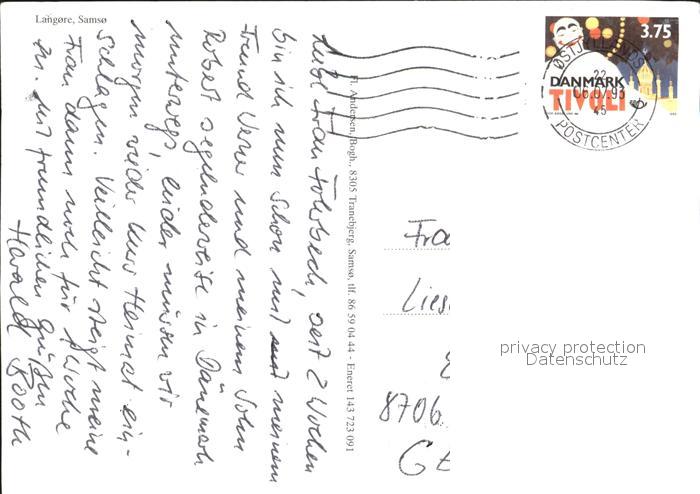 Langøre, Samsø
Liebe Frau Fohrbeck, seit 2 Wochen
bin ich nun schon mit meinem
Freund Verner und meinem Sohn
Robert segelnderweise in Dänemark
unterwegs, leider müssen wir
morgen wieder Kurs Heimat ein-
schlagen. Vielleicht steigt meine
Frau dann noch für 1 Woche
zu. Mit freundlichen Grüßen
Harald
Fl. Andersen, Bogh., 8305 Tranebjerg, Samsø, tlf. 86 59 04 44 - Eneret 143 723 091
3.75
DANMARK
TIVOLI
ØSTJYLLANDS
22
06.07.95
45
POSTCENTER
Fra
Lies
8706
GE
privacy protection
Datenschutz